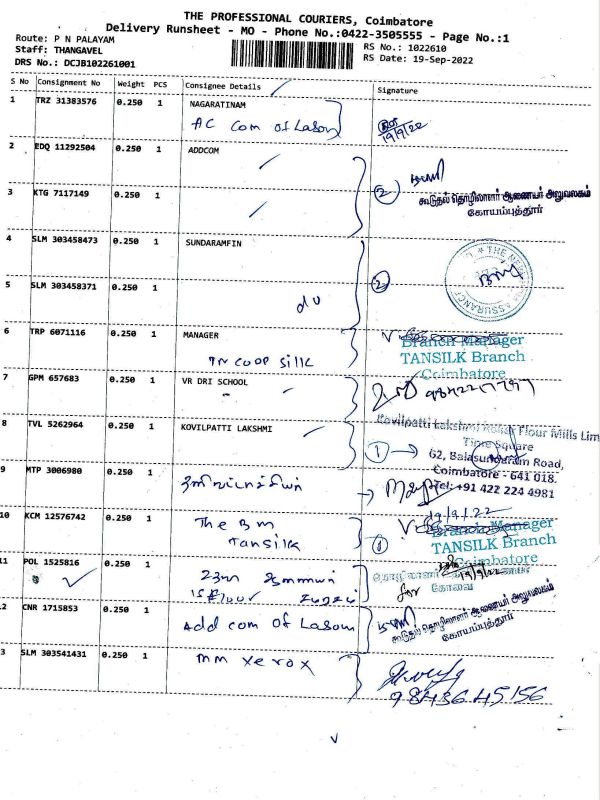 THE PROFESSIONAL COURIERS, Coimbatore
Delivery Runsheet - MO - Phone No.:0422-3505555 - Page No.:1
Route: P N PALAYAM
RS No.: 1022610
Staff: THANGAVEL
RS Date: 19-Sep-2022
DRS No.: DCJB102261001
S No Consignment No Weight PCS Consignee Details Signature
1 TRZ 31383576 0.250 1 NAGARATINAM
AC Com of Labour
19/9/22
2 EDQ 11292504 0.250 1 ADDCOM
2
கூடுதல் தொழிலாளர் ஆணையர் அலுவலகம்
கோயம்புத்தூர்
3 KTG 7117149 0.250 1
4 SLM 303458473 0.250 1 SUNDARAMFIN
2
ASSURANCE
5 SLM 303458371 0.250 1
du
6 TRP 6071116 0.250 1 MANAGER
TN COOP Silk
Branch Manager
TANSILK Branch
Coimbatore
7 GPM 657683 0.250 1 VR DRI SCHOOL
8 TVL 5262964 0.250 1 KOVILPATTI LAKSHMI
1
Kovilpatti Lakshmi Roller Flour Mills Lim
Time Square
62, Balasundaram Road,
Coimbatore - 641 018.
Tel: +91 422 224 4981
9 MTP 3006980 0.250 1
10 KCM 12576742 0.250 1 The BM
Tansilk
19/9/22
Branch Manager
TANSILK Branch
Coimbatore
11 POL 1525816 0.250 1
19/9/22
for
கோவை
2 CNR 1715853 0.250 1 Add com of Labour
கூடுதல் தொழிலாளர் ஆணையர் அலுவலகம்
கோயம்புத்தூர்
3 SLM 303541431 0.250 1 mm xerox
98436 45156